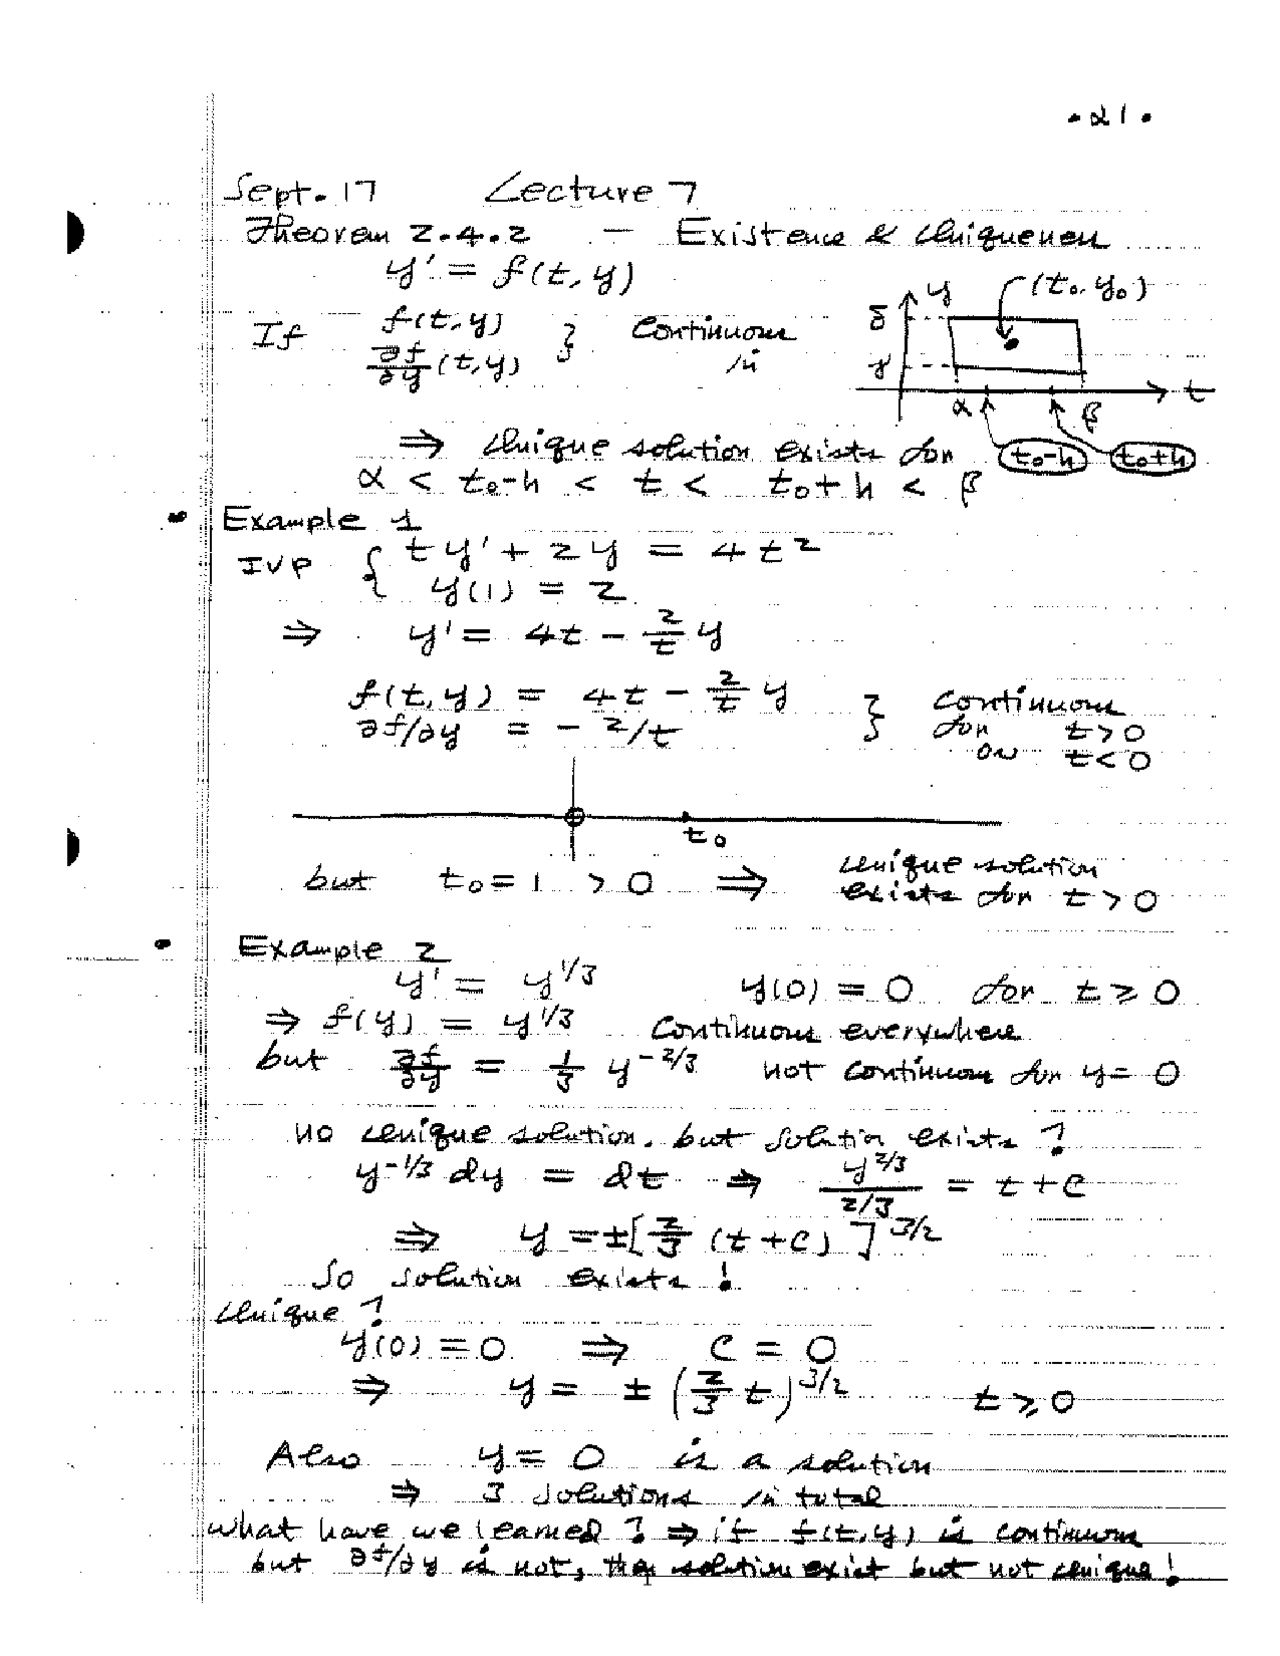 • 21 •
Sept. 17 Lecture 7
Theorem 2.4.2 — Existence & Uniqueness
y' = f(t, y)
If f(t, y) } continuous
∂f/∂y (t, y) in
y (t₀, y₀)
δ
γ
t
α β
t₀-h t₀+h
⇒ Unique solution exists for
α < t₀-h < t < t₀+h < β
• Example 1
IVP { ty' + 2y = 4t²
y(1) = 2
⇒ y' = 4t - 2/t y
f(t, y) = 4t - 2/t y } continuous
∂f/∂y = - 2/t for t>0
or t<0
t₀
but t₀ = 1 > 0 ⇒ unique solution
exists for t > 0
• Example 2
y' = y^1/3 y(0) = 0 for t ≥ 0
⇒ f(y) = y^1/3 continuous everywhere
but ∂f/∂y = 1/3 y^-2/3 not continuous for y = 0
no unique solution. but solution exists ?
y^-1/3 dy = dt ⇒ y^2/3 / 2/3 = t + c
⇒ y = ±[2/3 (t + c)]^3/2
So solution exists !
Unique ?
y(0) = 0 ⇒ c = 0
⇒ y = ± (2/3 t)^3/2 t ≥ 0
Also y = 0 is a solution
⇒ 3 solutions in total
what have we learned ? ⇒ if f(t, y) is continuous
but ∂f/∂y is not, then solution exist but not unique !